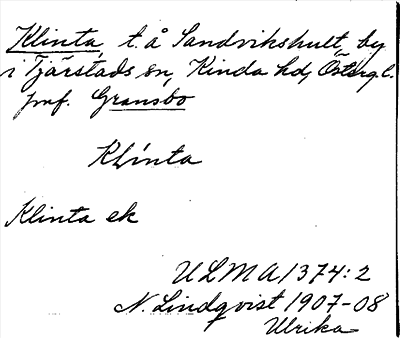 Klinta, t. å Sandvikshult, by
i Tjärstads sn, Kinda hd, Östergl.
jmf. Gransbo
Klinta
Klinta ek
ULMA 1374:2
N. Lindqvist 1907-08
Ulrika